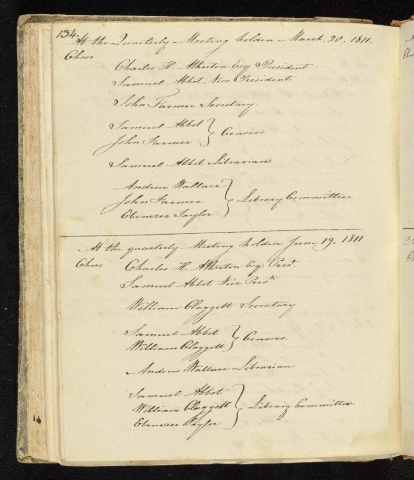 134.
At the Quarterly Meeting holden March 20, 1811.
Chose
Charles H. Atherton Esq President
Samuel Abbot Vice President
John Farmer Secretary
Samuel Abbot
John Farmer } Censors
Samuel Abbot Librarian
Andrew Wallace
John Farmer } Library Committee
Ebenezer Taylor
At the quarterly Meeting holden June 19, 1811
Chose Charles H. Atherton Esq. Prest
Samuel Abbot Vice Prest
William Claggett Secretary
Samuel Abbot
William Claggett } Censors
Andrew Wallace Librarian
Samuel Abbot
William Claggett } Library Committee
Ebenezer Taylor